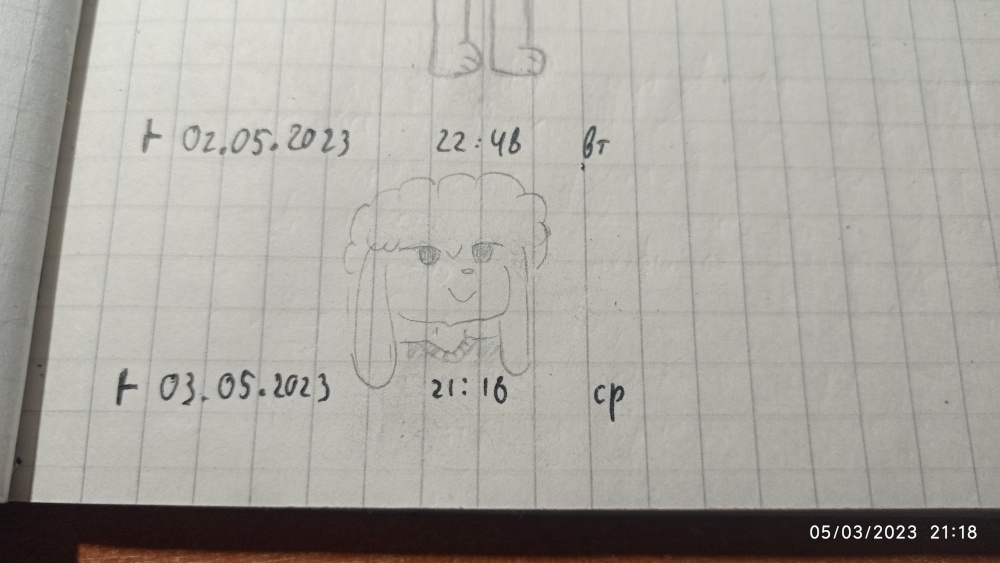 02.05.2023 22:48 вт
03.05.2023 21:18 ср
05/03/2023 21:18